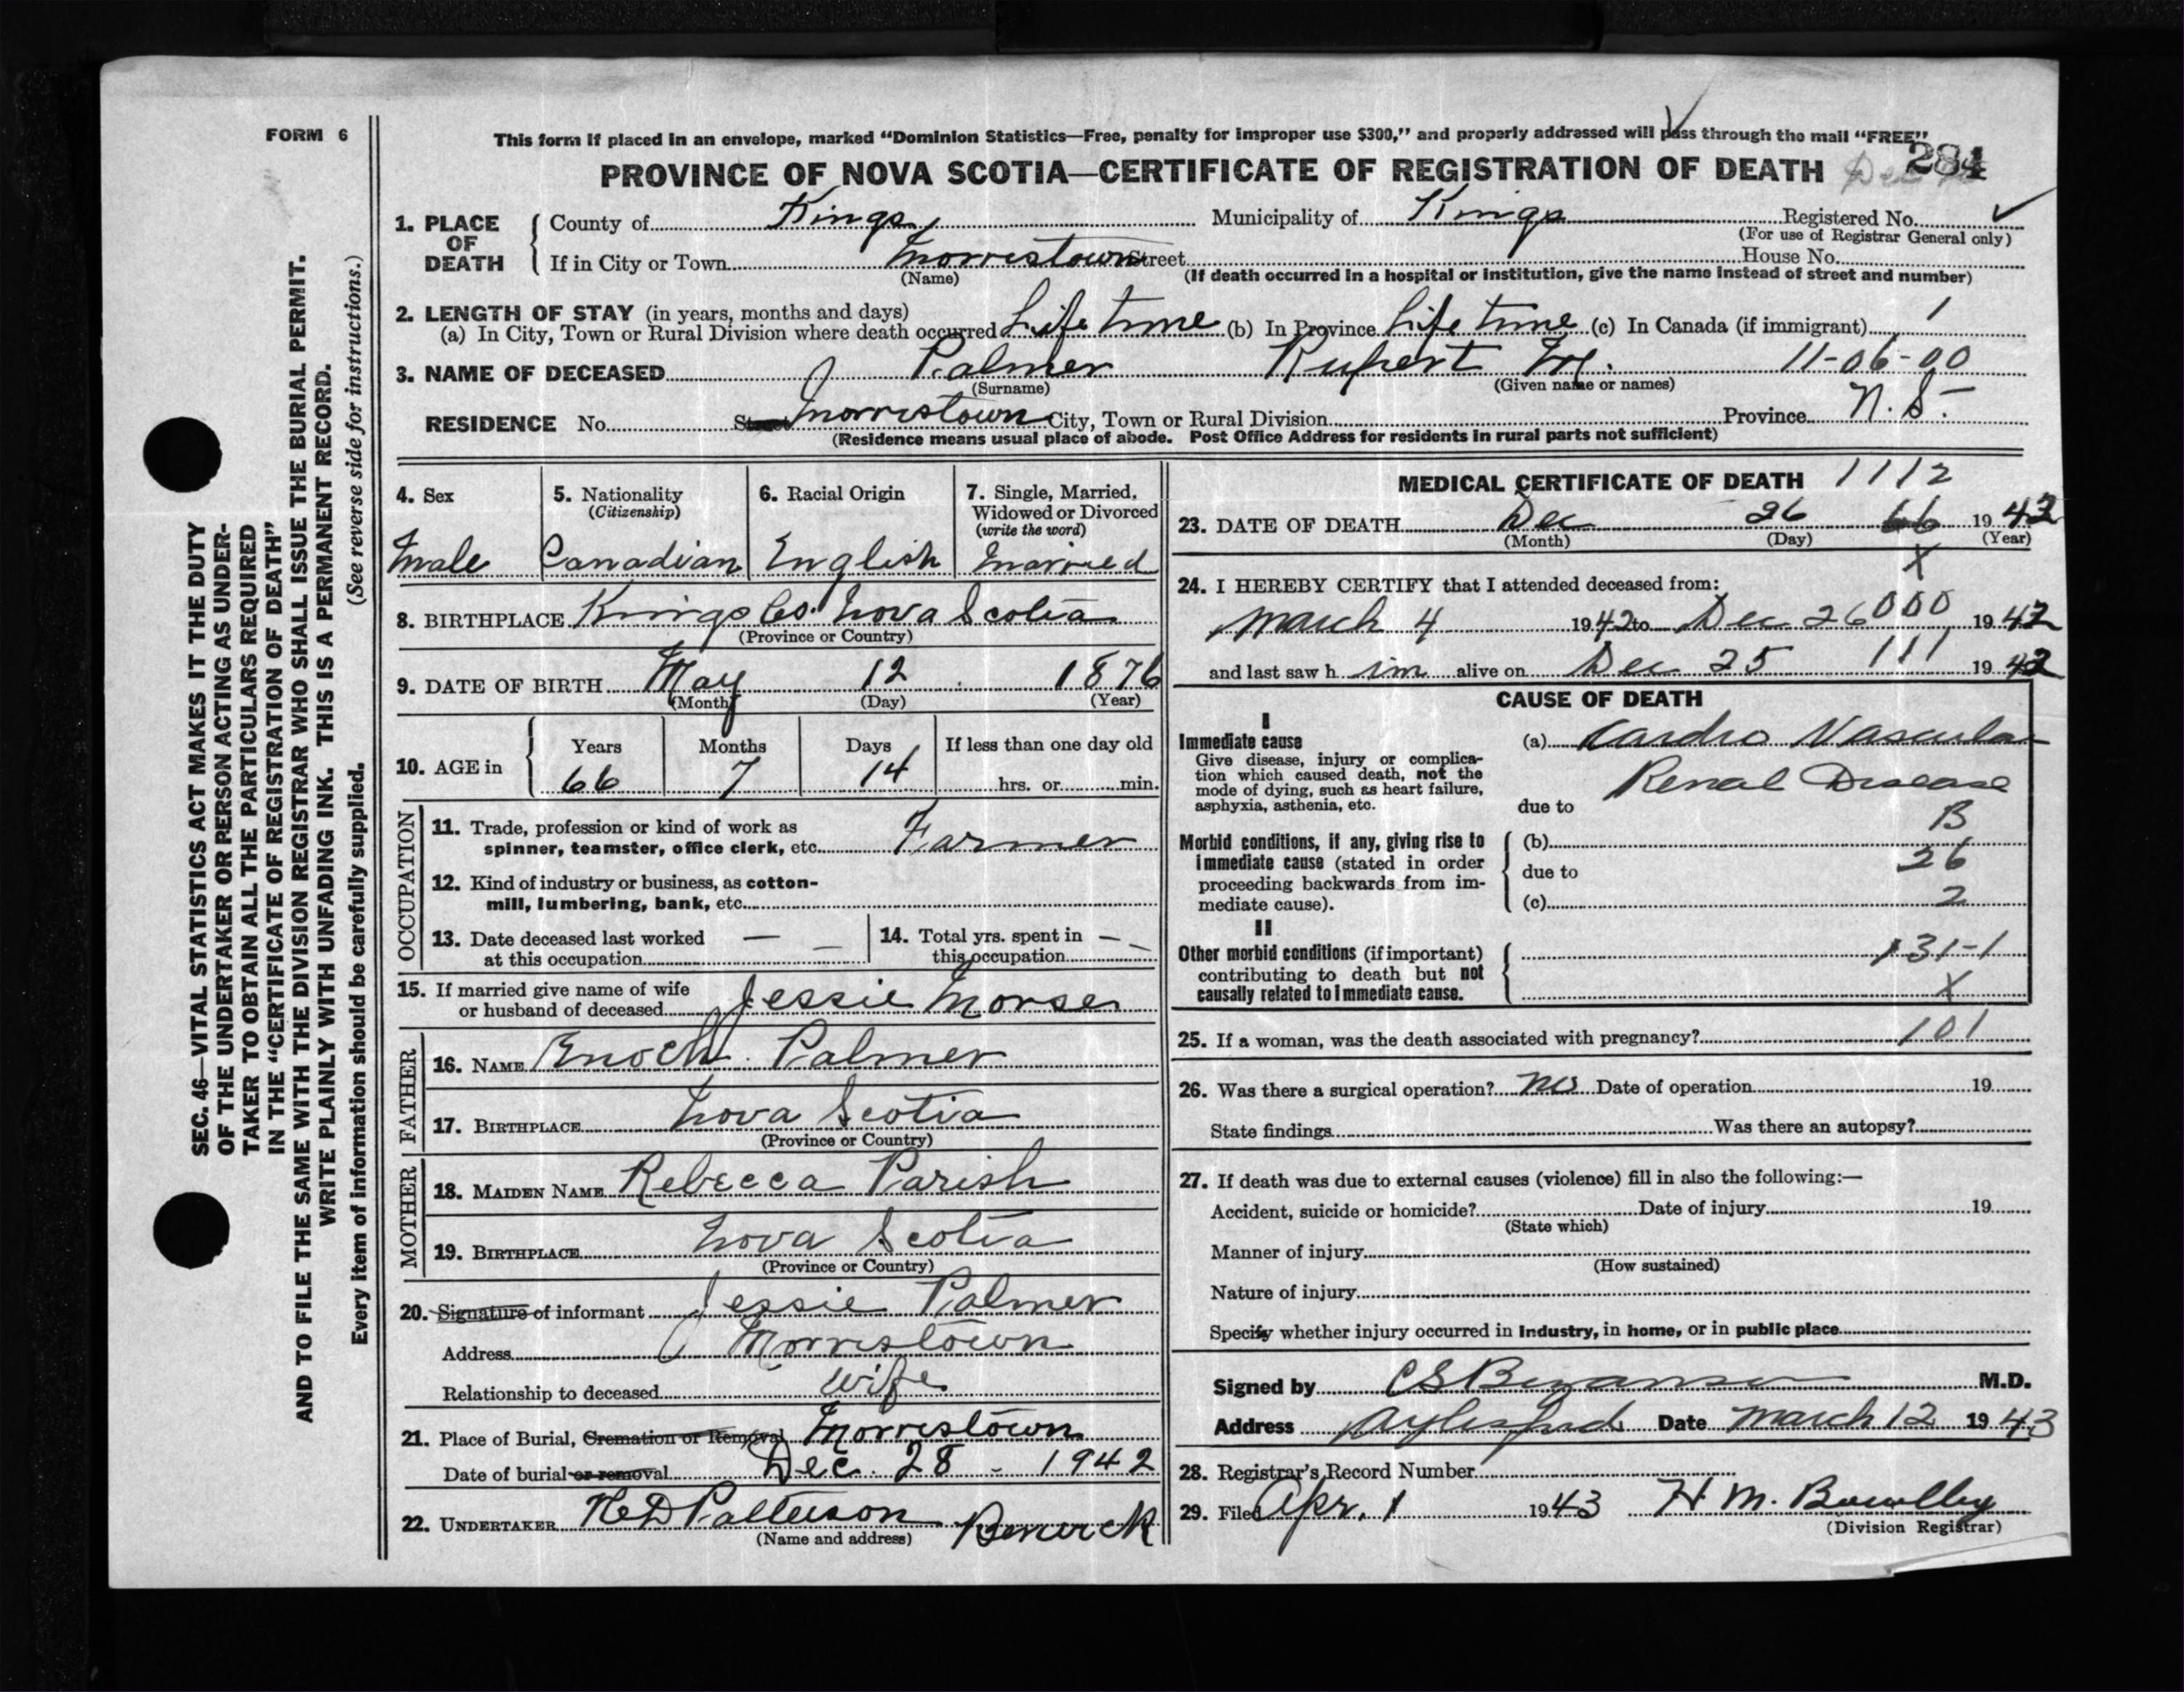 FORM 6
This form if placed in an envelope, marked “Dominion Statistics—Free, penalty for improper use $300,” and properly addressed will pass through the mail “FREE”
PROVINCE OF NOVA SCOTIA—CERTIFICATE OF REGISTRATION OF DEATH 284
1. PLACE OF DEATH County of Kings Municipality of Kings Registered No.
(For use of Registrar General only)
If in City or Town Morristown Street House No.
(Name) (If death occurred in a hospital or institution, give the name instead of street and number)
2. LENGTH OF STAY (in years, months and days)
(a) In City, Town or Rural Division where death occurred Life time (b) In Province Life time (c) In Canada (if immigrant) /
3. NAME OF DECEASED Palmer Rupert M. 11-06-00
(Surname) (Given name or names)
RESIDENCE No. Street Morristown City, Town or Rural Division Province N.S.
(Residence means usual place of abode. Post Office Address for residents in rural parts not sufficient)
4. Sex
Male
5. Nationality
(Citizenship)
Canadian
6. Racial Origin
English
7. Single, Married, Widowed or Divorced
(write the word)
Married
8. BIRTHPLACE Kings Co. Nova Scotia
(Province or Country)
9. DATE OF BIRTH May 12 1876
(Month) (Day) (Year)
10. AGE in Years Months Days If less than one day old
66 7 14 hrs. or min.
OCCUPATION
11. Trade, profession or kind of work as
spinner, teamster, office clerk, etc. Farmer
12. Kind of industry or business, as cotton-
mill, lumbering, bank, etc.
13. Date deceased last worked — —
at this occupation
14. Total yrs. spent in — —
this occupation
15. If married give name of wife
or husband of deceased Jessie Morse
FATHER
16. NAME Enoch Palmer
17. BIRTHPLACE Nova Scotia
(Province or Country)
MOTHER
18. MAIDEN NAME Rebecca Parish
19. BIRTHPLACE Nova Scotia
(Province or Country)
20. Signature of informant Jessie Palmer
Address Morristown
Relationship to deceased wife
21. Place of Burial, Cremation or Removal Morristown
Date of burial or removal Dec. 28 - 1942
22. UNDERTAKER Patterson Berwick
(Name and address)
MEDICAL CERTIFICATE OF DEATH 1112
23. DATE OF DEATH Dec 26 66 1942
(Month) (Day) (Year)
X
24. I HEREBY CERTIFY that I attended deceased from:
March 4 1942 to Dec 26 000 1942
and last saw h im alive on Dec 25 111 1942
CAUSE OF DEATH
I
Immediate cause
Give disease, injury or complica-
tion which caused death, not the
mode of dying, such as heart failure,
asphyxia, asthenia, etc.
(a) Cardio Vascular
Renal Disease
due to
B
Morbid conditions, if any, giving rise to
immediate cause (stated in order
proceeding backwards from im-
mediate cause).
(b)
due to 26
(c) 2
II
Other morbid conditions (if important)
contributing to death but not
causally related to immediate cause.
131-1
X
25. If a woman, was the death associated with pregnancy? 101
26. Was there a surgical operation? no Date of operation 19
State findings Was there an autopsy?
27. If death was due to external causes (violence) fill in also the following:—
Accident, suicide or homicide? Date of injury 19
(State which)
Manner of injury
(How sustained)
Nature of injury
Specify whether injury occurred in Industry, in home, or in public place
Signed by M.D.
Address Aylesford Date March 12 1943
28. Registrar's Record Number
29. Filed Apr. 1 1943 H M.
(Division Registrar)
SEC. 46—VITAL STATISTICS ACT MAKES IT THE DUTY
OF THE UNDERTAKER OR PERSON ACTING AS UNDER-
TAKER TO OBTAIN ALL THE PARTICULARS REQUIRED
IN THE “CERTIFICATE OF REGISTRATION OF DEATH”
AND TO FILE THE SAME WITH THE DIVISION REGISTRAR WHO SHALL ISSUE THE BURIAL PERMIT.
WRITE PLAINLY WITH UNFADING INK. THIS IS A PERMANENT RECORD.
Every item of information should be carefully supplied. (See reverse side for instructions.)